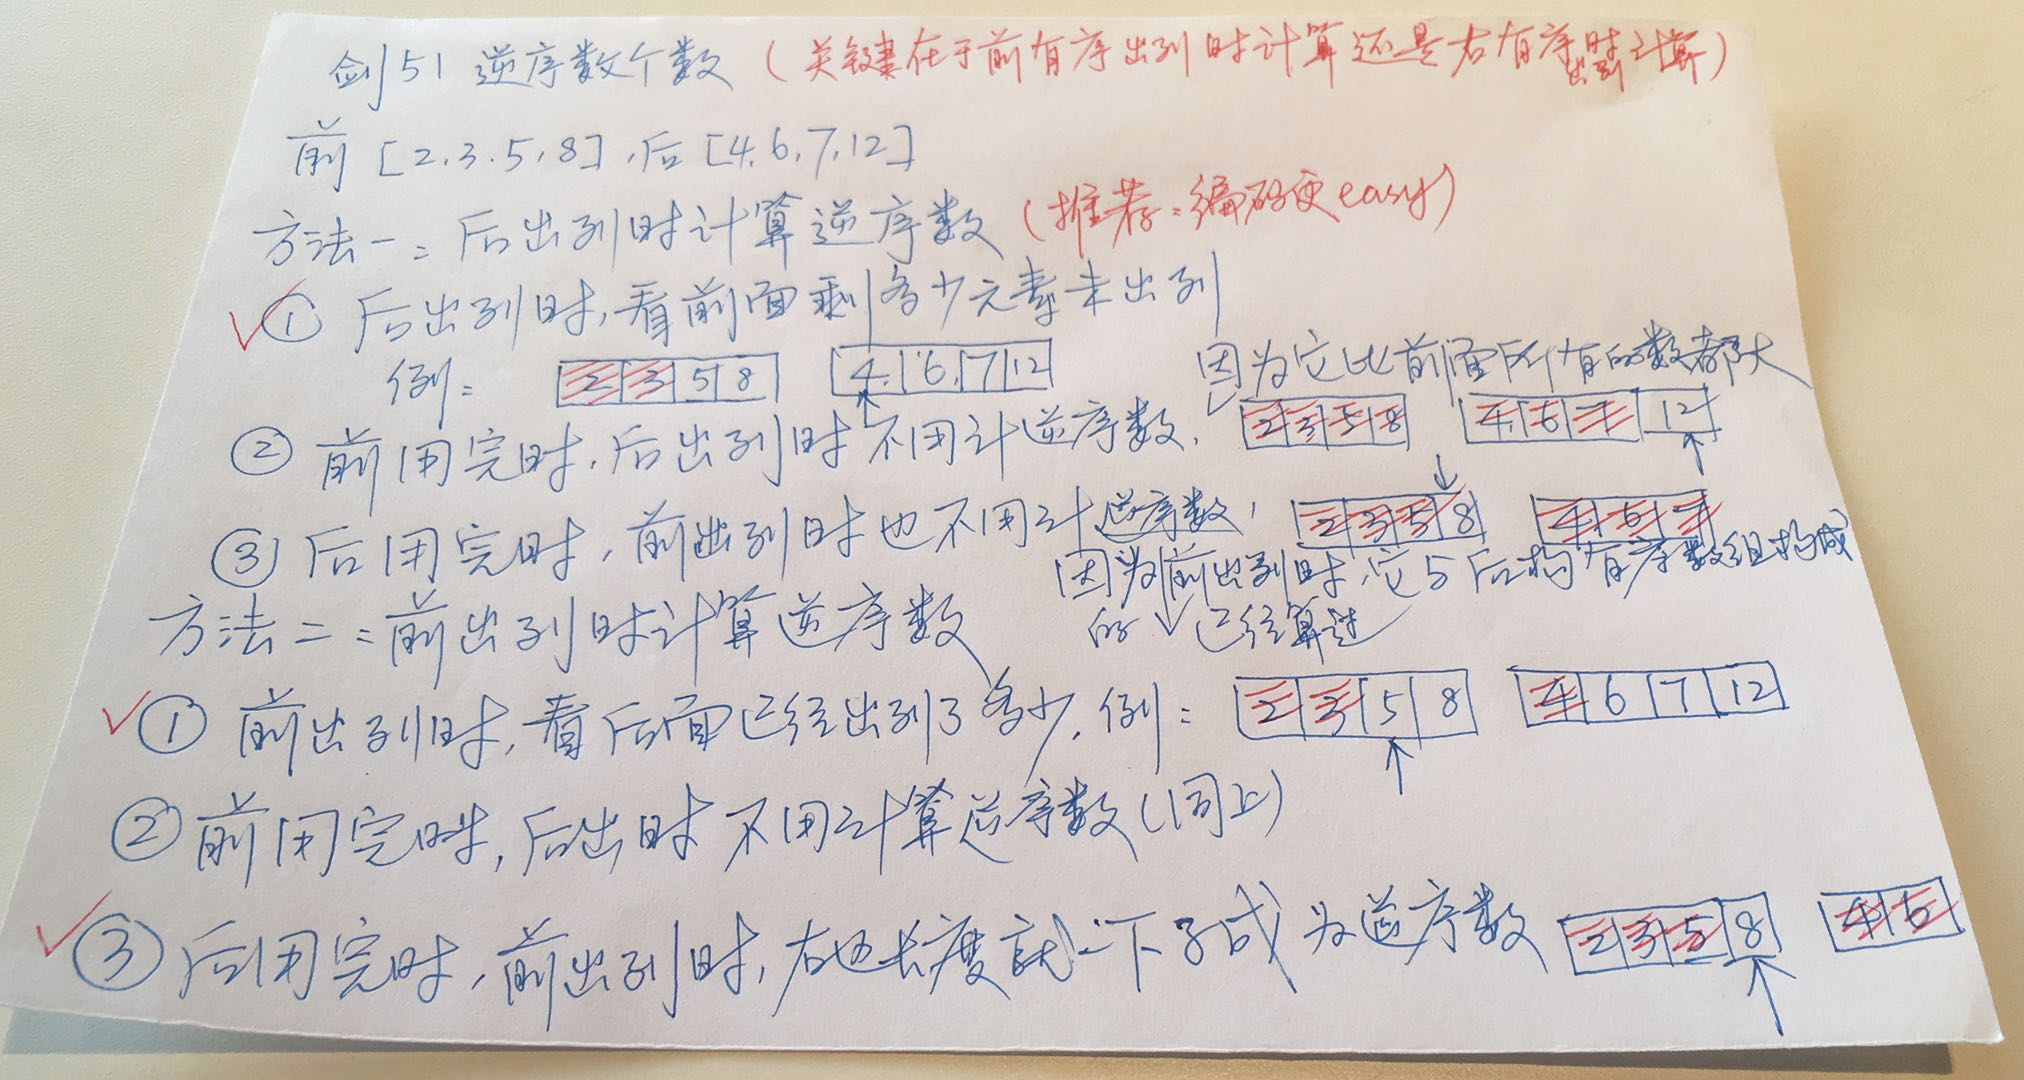 剑51 逆序数个数 (关键在于前有序出列时计算还是右有序出列时计算)
前 [2,3,5,8],后 [4,6,7,12]
方法一:后出列时计算逆序数 (推荐:编码更easy)
① 后出列时,看前面剩多少元素未出列
例: 2 3 5 8 4 6 7 12
因为它比前面所有的数都大
② 前用完时,后出列时不用计逆序数, 2 3 5 8 4 6 7 12
③ 后用完时,前出列时也不用计逆序数, 2 3 5 8 4 6 7
因为前出列时,它与后构有序数组构成
的 已经算过
方法二:前出列时计算逆序数
① 前出列时,看后面已经出列了多少,例: 2 3 5 8 4 6 7 12
② 前用完时,后出时不用计算逆序数(同上)
③ 后用完时,前出列时,右边长度就一下子成为逆序数 2 3 5 8 4 6